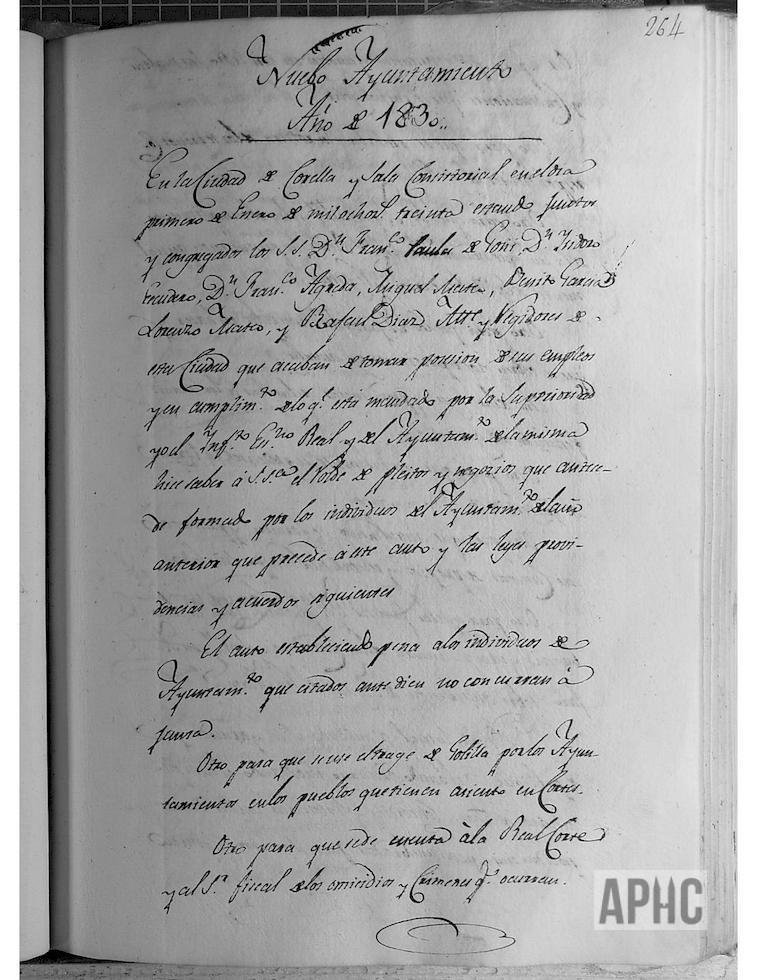 264
Nuebo Ayuntamiento
Año de 1830..
En la Ciudad de Corella y Sala Consistorial en el dia
primero de Enero de mil ochos. treinta estando juntos
y congregados los S.S. Dn. Fran.co Paula de Goñi Dn. Isidoro
Escudero, Dn. Fran.co Agreda, Miguel Mateo, Benito Garcia
Lorenzo Mateo, y Rafael Diaz Alc. y Regidores de
esta Ciudad que acaban de tomar posesion de sus empleos
y en cumplim.to de lo q.e está mandado por la Superioridad
yo el Inf.to Es.no Real y del Ayuntam.to de la misma
hice saber á S.S.a el Rolde de pleitos y negozios que antece-
de formado por los individuos del Ayuntam.to del año
anterior que precede á este auto y las leyes provi-
dencias y acuerdos siguientes
El auto estableciendo pena a los individuos de
Ayuntam.to que citados ante diem no concurran á
junta.
Otro para que se use el trage de Golilla por los Ayun-
tamientos en los pueblos que tienen asiento en Cortes.
Otro para que se de cuenta á la Real Corte
y al S.r fiscal de los omicidios y Crimenes q.e ocurran.
APHC